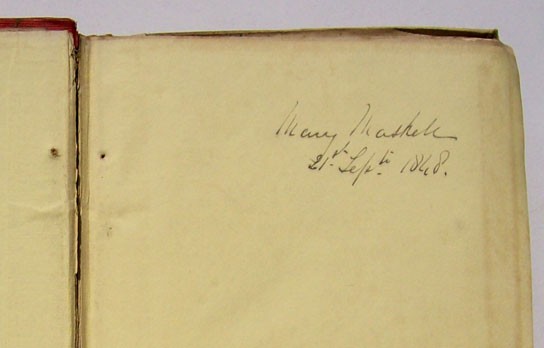 Mary Maskell
21st Septr. 1848.